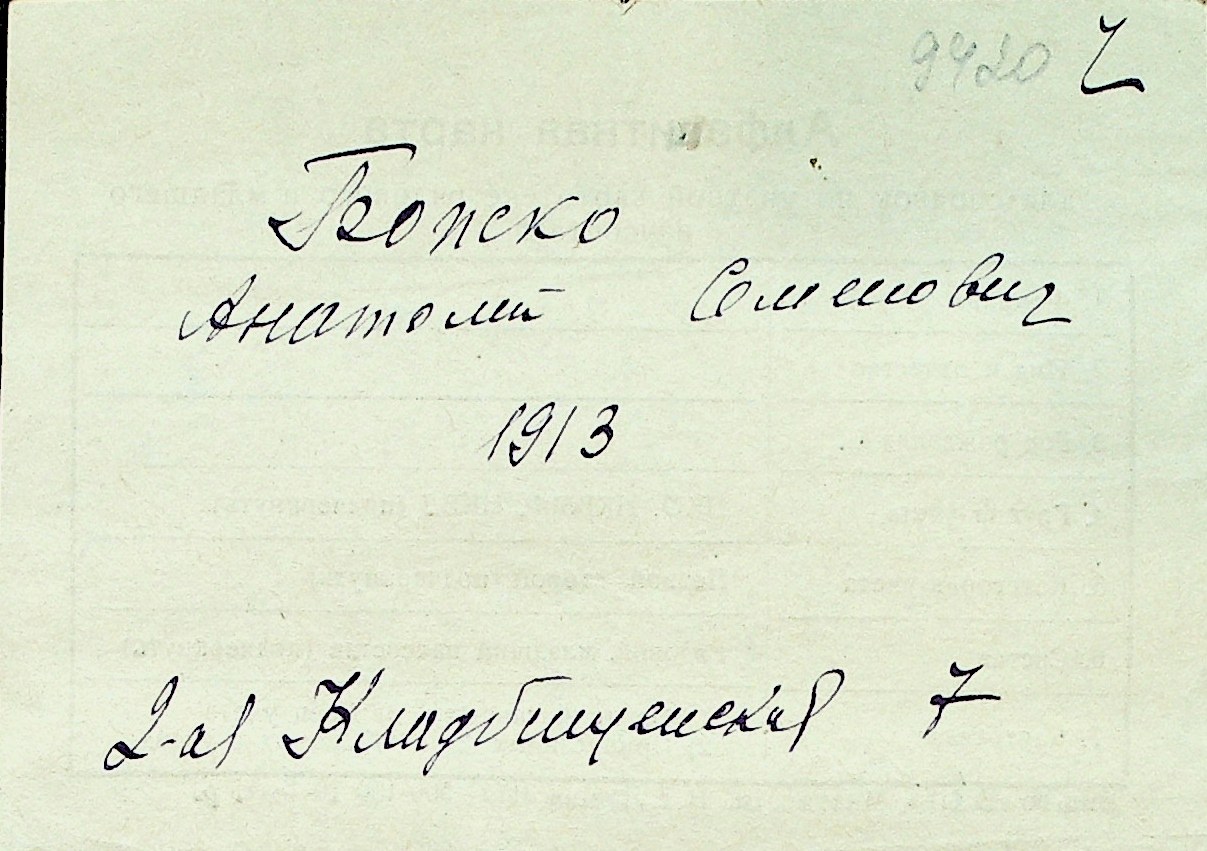 9420 Ч
Божко
Анатолий Семенович
1913
2-ая Кладбищенская 7